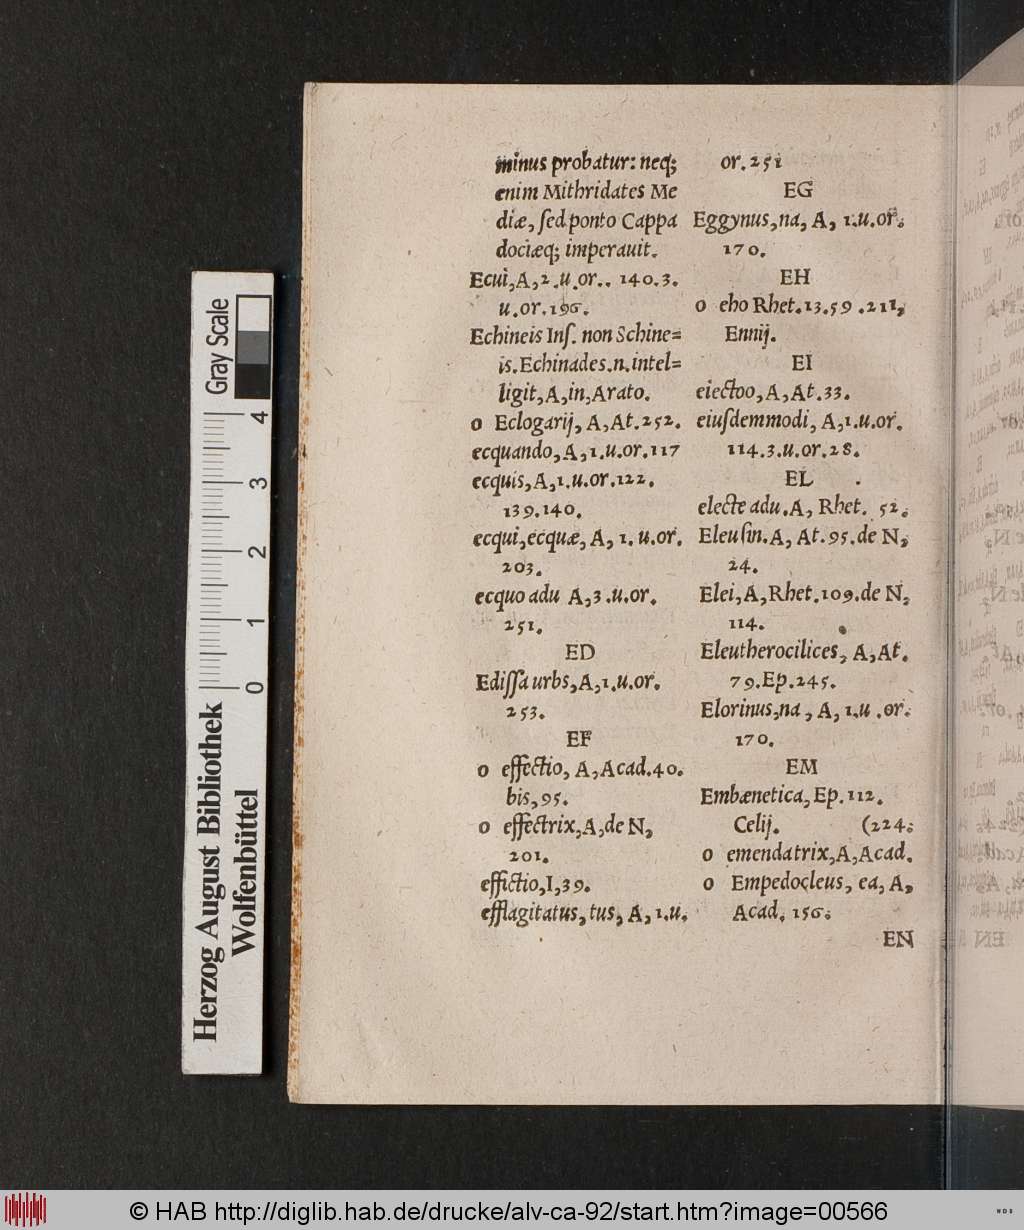 minus probatur: neq;
enim Mithridates Me
diæ, ſed ponto Cappa
dociæq; imperauit.
Ecui, A, 2. u. or.. 140. 3.
u. or. 196.
Echineis Inſ. non Schine=
is. Echinades. n. intel=
ligit, A, in, Arato.
o Eclogarij, A, At. 252.
ecquando, A, 1. u. or. 117
ecquis, A, 1. u. or. 122.
139. 140.
ecqui, ecquæ, A, 1. u. or.
203.
ecquo adu A, 3. u. or.
251.
ED
Ediſſa urbs, A, 1. u. or.
253.
EF
o effectio, A, Acad. 40.
bis, 95.
o effectrix, A, de N,
201.
effictio, I, 39.
efflagitatus, tus, A, 1. u.
or. 251
EG
Eggynus, na, A, 1. u. or.
170.
EH
o eho Rhet. 13. 59 . 211,
Ennij.
EI
eiectoo, A, At. 33.
eiuſdemmodi, A, 1. u. or.
114. 3. u. or. 28.
EL
electe adu. A, Rhet. 52.
Eleuſin. A, At. 95. de N,
24.
Elei, A, Rhet. 109. de N,
114.
Eleutherocilices, A, At.
79. Ep. 245.
Elorinus, na, A, 1. u. or.
170.
EM
Embænetica, Ep. 112.
Celij. (224.
o emendatrix, A, Acad.
o Empedocleus, ea, A,
Acad. 156.
EN
Gray Scale
0 1 2 3 4
Herzog August Bibliothek
Wolfenbüttel
© HAB http://diglib.hab.de/drucke/alv-ca-92/start.htm?image=00566